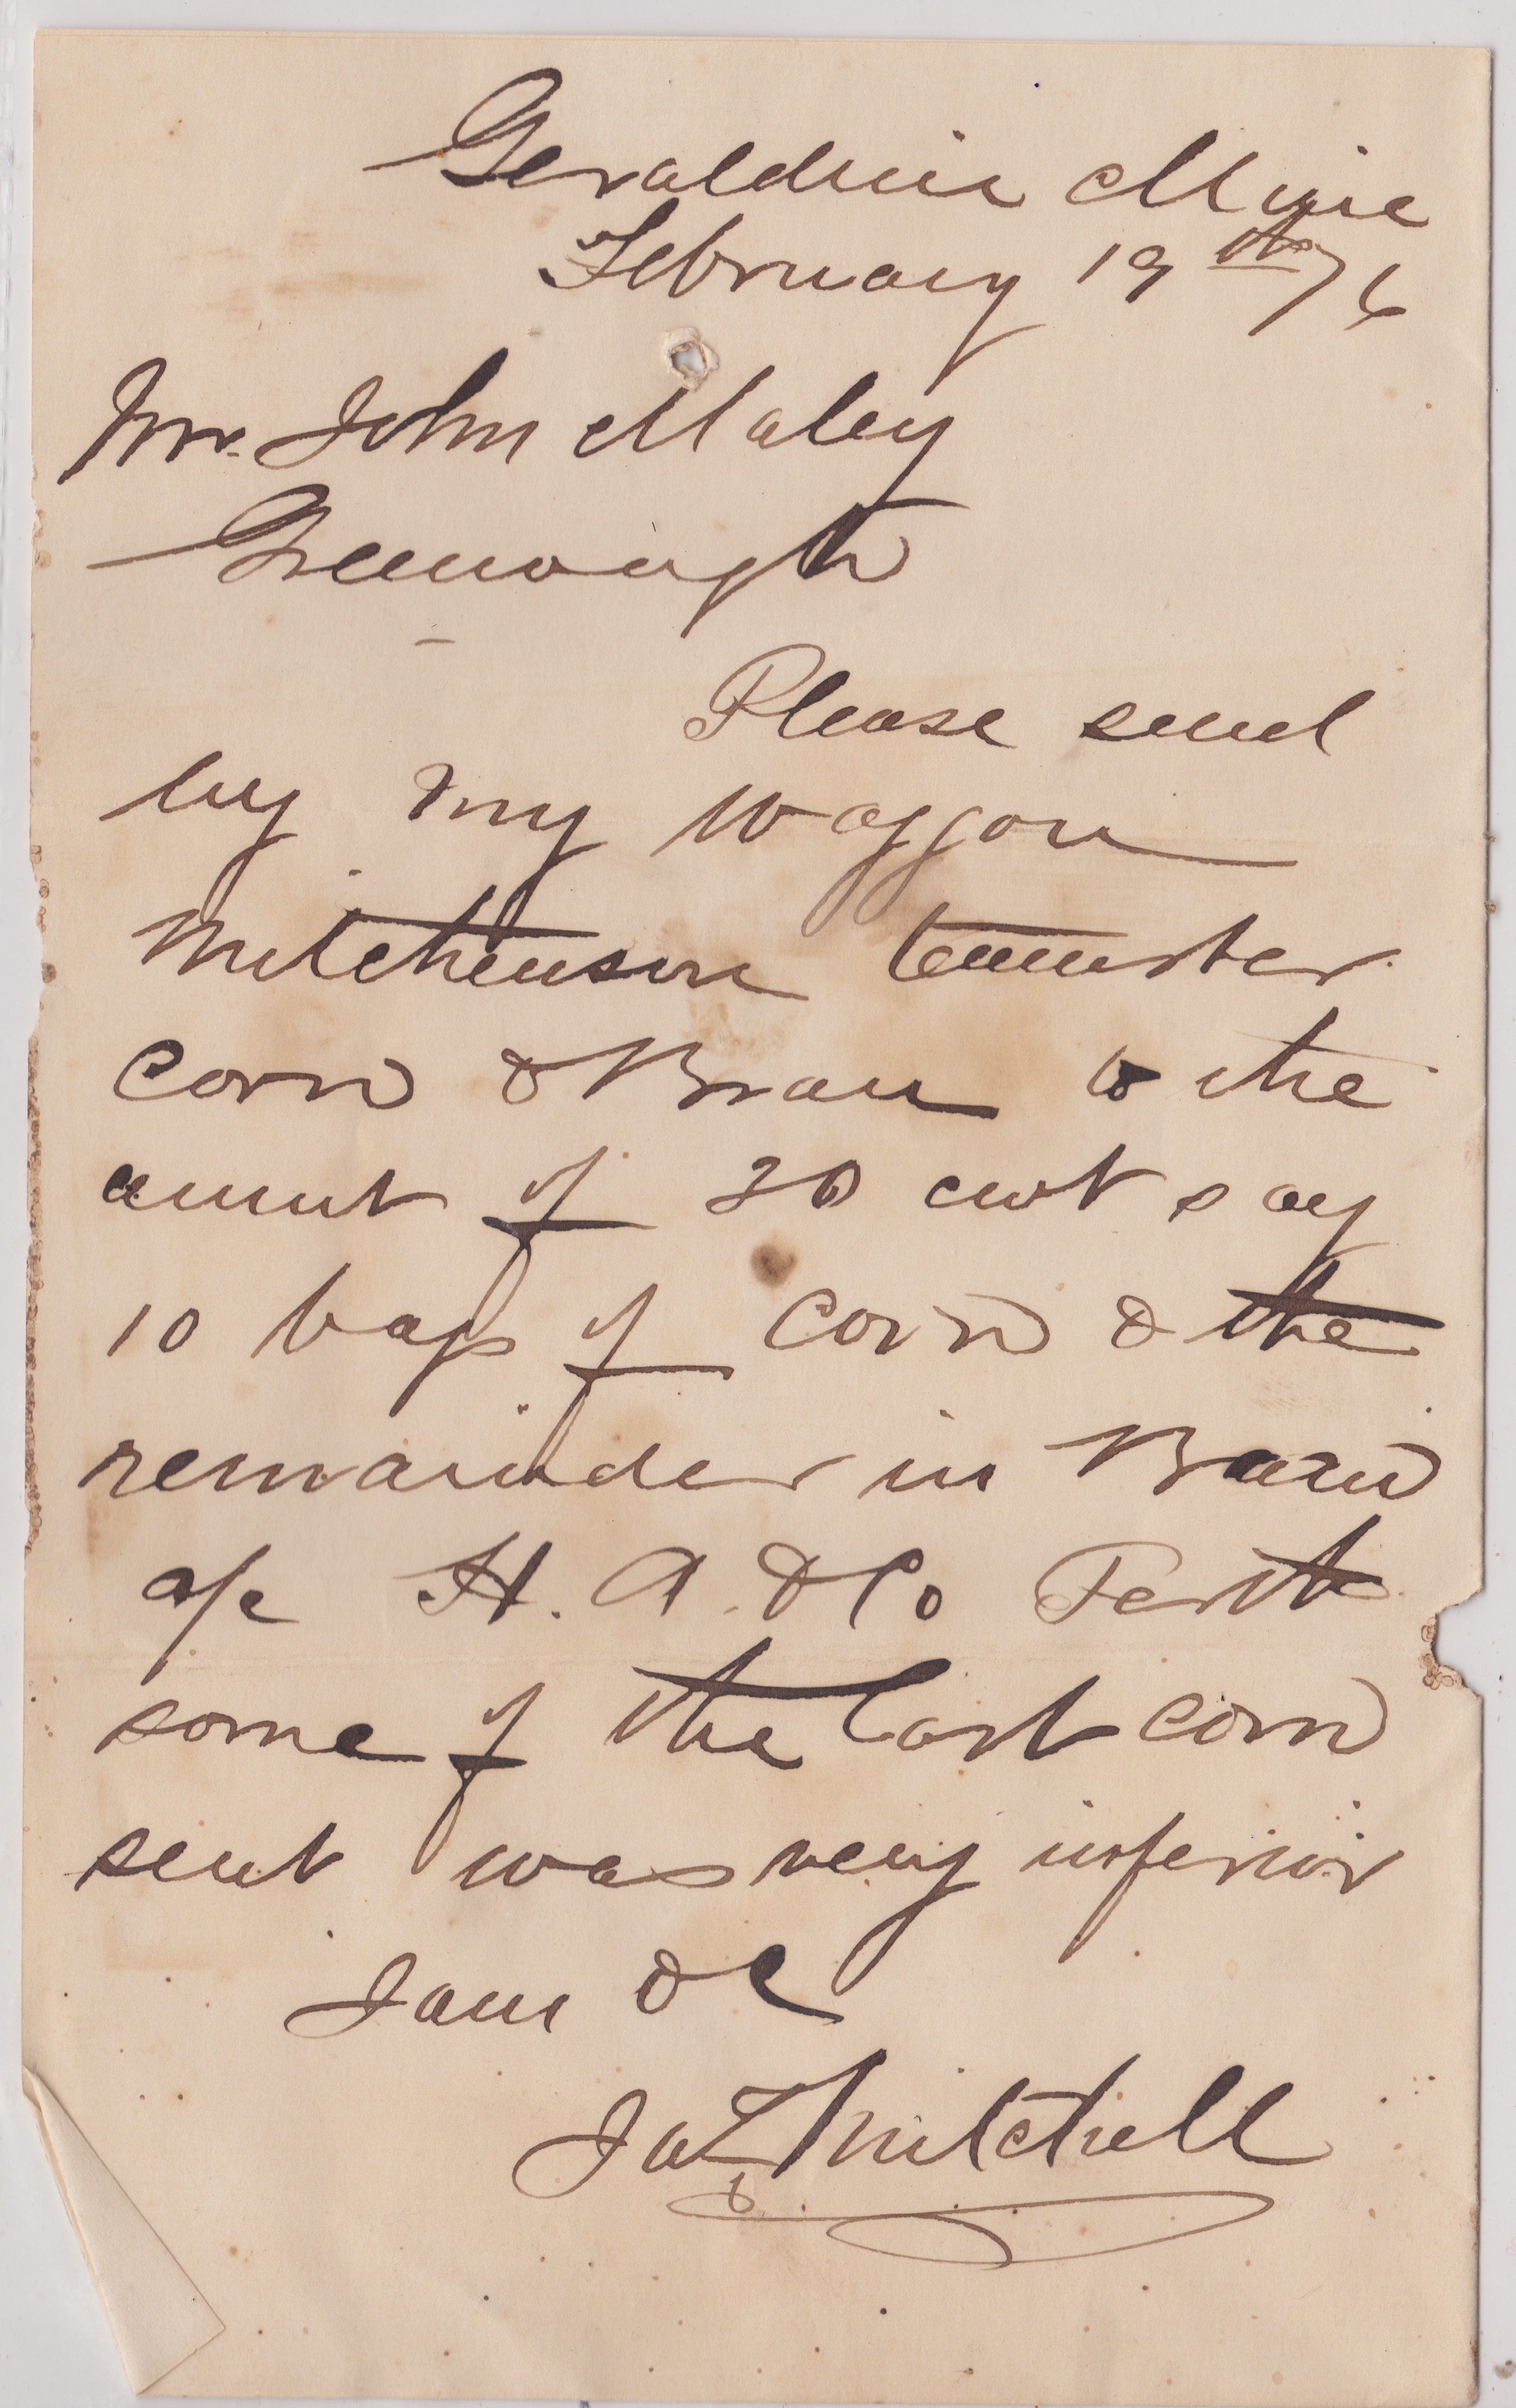 Geraldine Mine
February 19th 76
Mr. John Maley
Greenough
Please send
by my waggon
Mitchenson teamster
Corn & Bran to the
amut of 30 cwt say
10 bags of Corn & the
remainder in Bran
a/c H. A. & Co Perth
some of the last corn
sent was very inferior
I am &c
Jas Mitchell